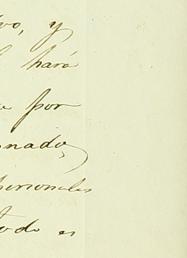 vo, y
hará
por
nado,
personales
todo es